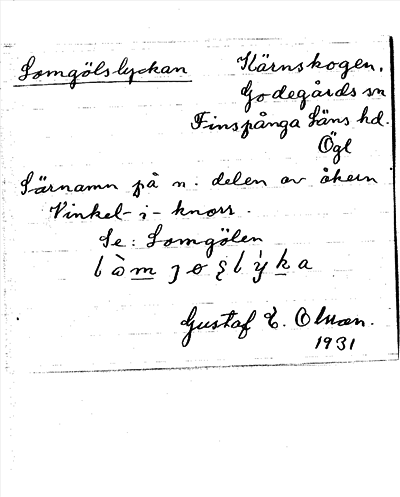 Lomgölslyckan Kärnskogen,
Godegårds sn
Finspånga Läns hd.
Ögl
Särnamn på n. delen av åkern
Vinkel-i-knorr.
Se: Lomgölen
Gustaf E. Olsson.
1931